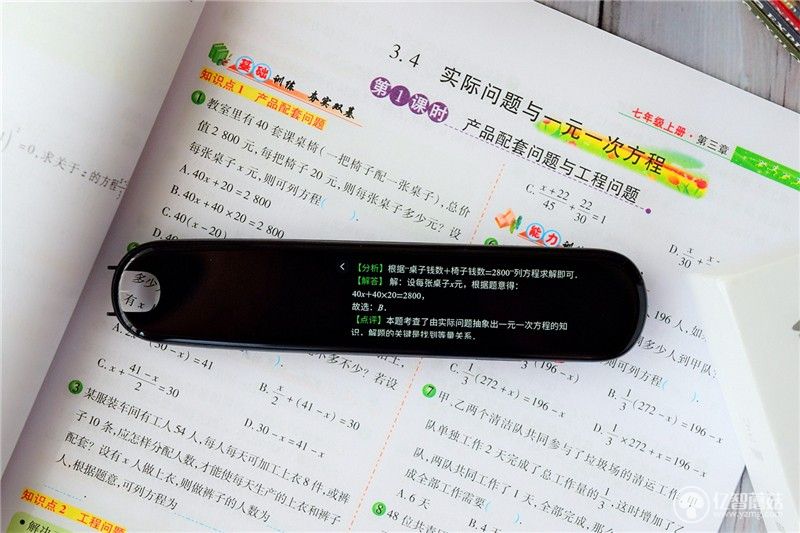 3.4 实际问题与一元一次方程
第1课时 产品配套问题与工程问题
七年级上册·第三章
基础训练 夯实双基
知识点1 产品配套问题
1 教室里有40套课桌椅(一把椅子配一张桌子),总价
值2 800元,每把椅子20元,则每张桌子多少元?设
每张桌子x元,则可列方程( ).
A. 40x+20=2 800
B. 40x+40×20=2 800
C. 40(x-20)
D. 40
多少
有x
(30-x)=41
C. x+(41-x)/2=30
B. x/2+(41-x)=30
D. 30-x=41-x
3 某服装车间有工人54人,每人每天可加工上衣8件,或裤
子10条,应怎样分配人数,才能使每天生产的上衣和裤子
配套?设有x人做上衣,则做裤子的人数为
人,根据题意,可列方程为
知识点2 工程问题
=0,求关于z的方程
【分析】根据“桌子钱数+椅子钱数=2800”列方程求解即可.
【解答】解:设每张桌子x元,根据题意得:
40x+40×20=2800,
故选:B.
【点评】本题考查了由实际问题抽象出一元一次方程的知
识,解题的关键是找到等量关系.
C. (x+22)/45+22/30=1
D. x/30+
能力
196人,如
多少人到甲队
则可列方程( ).
(196-x)
C. 1/3(272+x)=196-x
B. 1/3(272-x)=196-x
D. 1/3×272+x=196-x
7 甲、乙两个清洁队共同参与了垃圾场的清运工作
队单独工作2天完成了总工作量的1/3,这时增加了乙
队,两队共同工作了1天,全部完成,那么
成全部工作需要( ).
A. 6天
B. 4天
8 48位共青
亿智蘑菇
www.yzmg.com